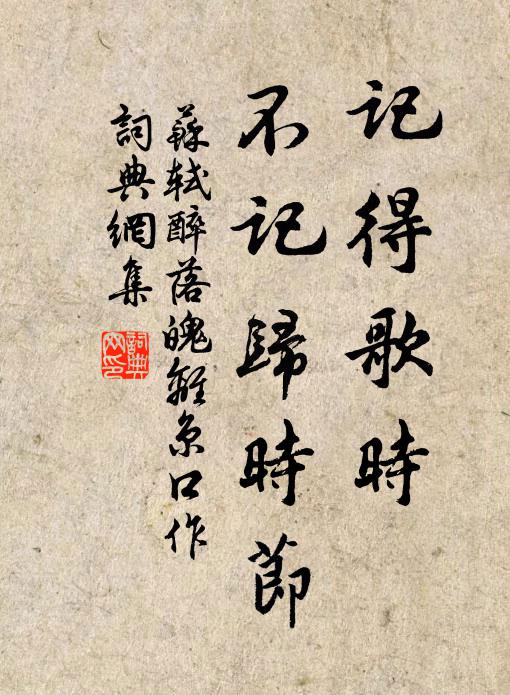 記得歌時
不記歸時節
蘇軾醉落魄離京口作
詞典網集
詞典網印